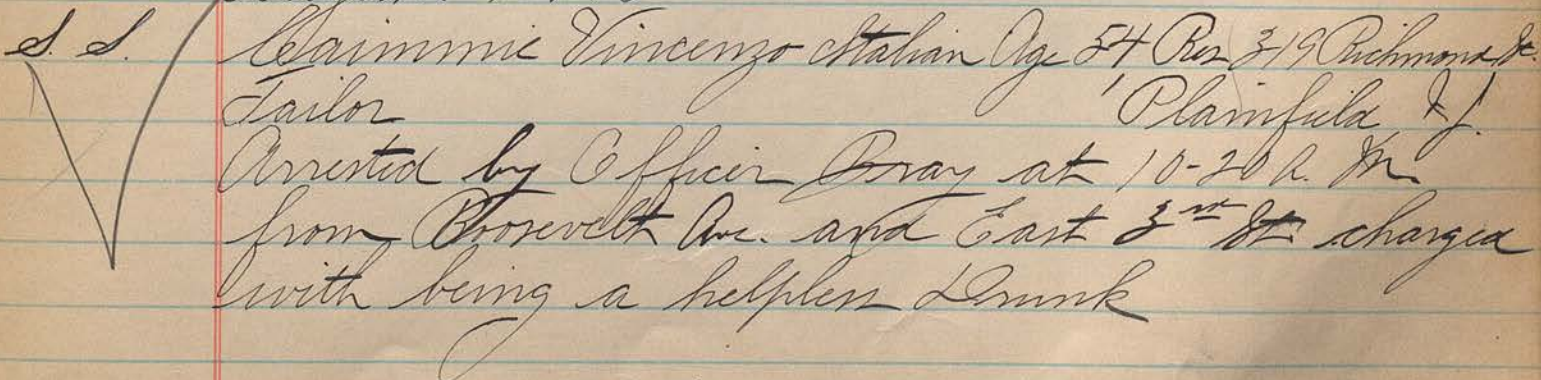 S. S. Caimmie Vincenzo Italian Age 54 Res 319 Richmond St.
Tailor Plainfield N. J.
Arrested by Officer Bray at 10-20 A. M.
from Roosevelt Ave. and East 3rd St charged
with being a helpless Drunk